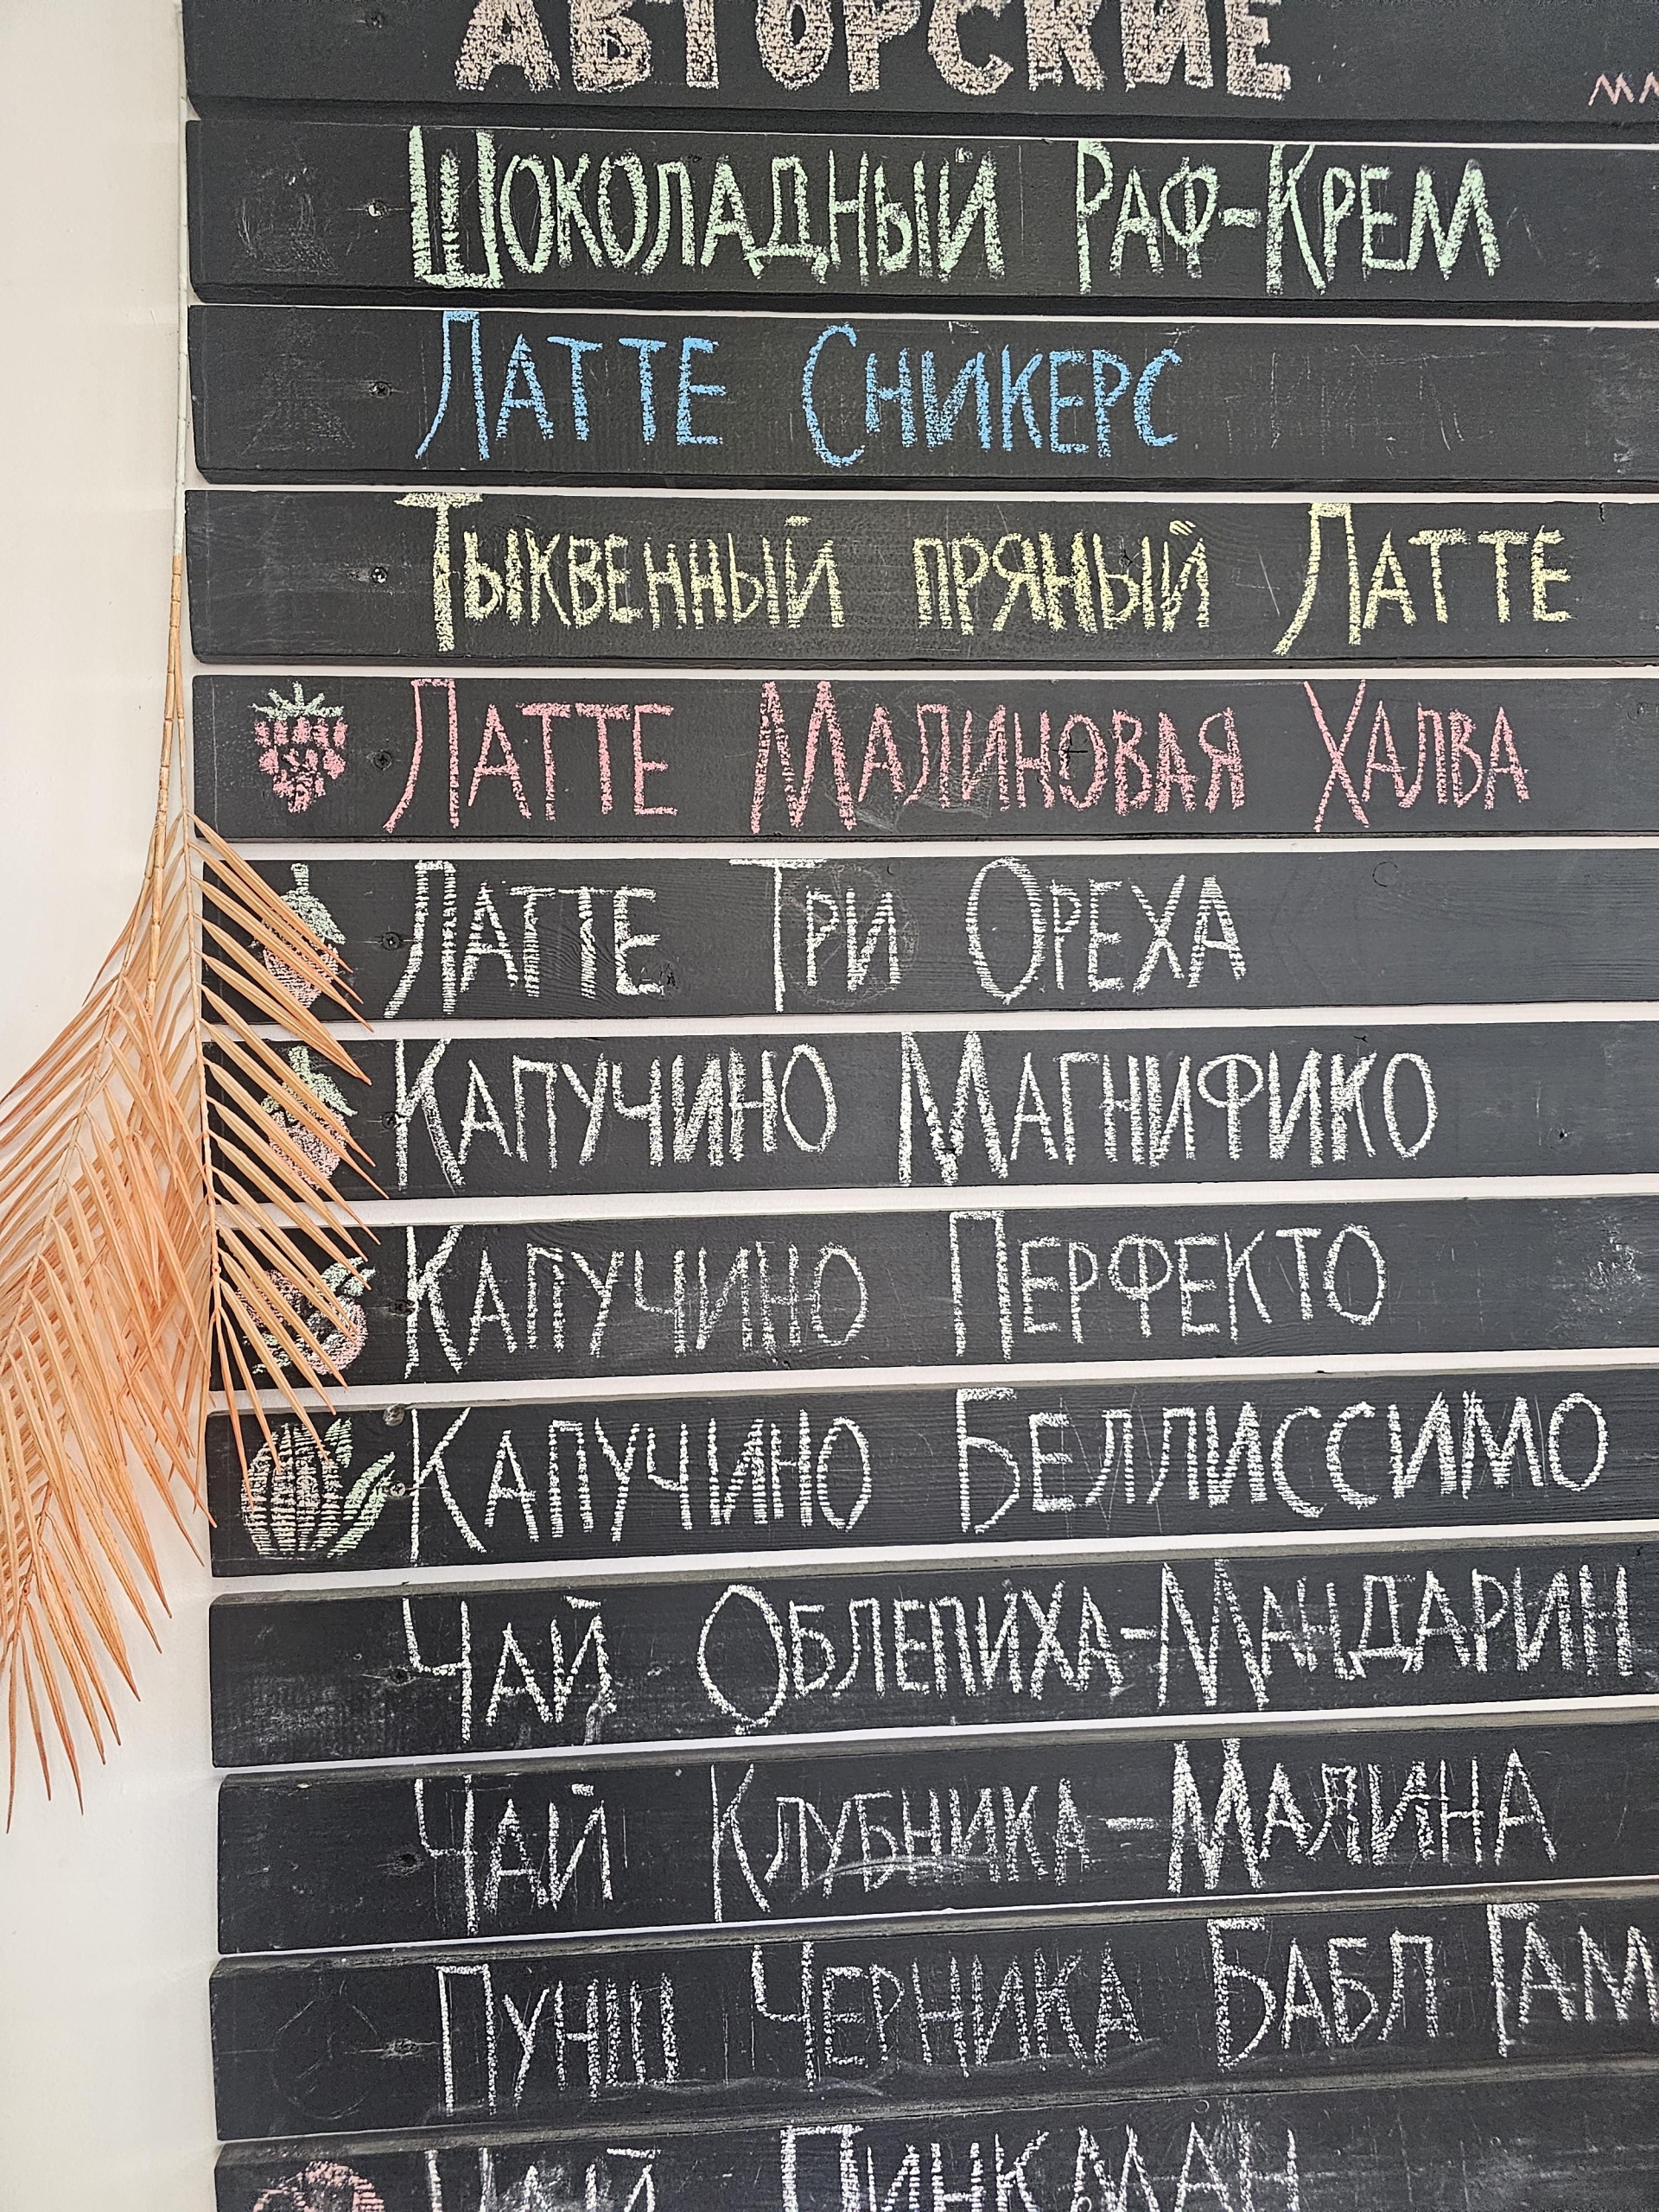 АВТОРСКИЕ
ШОКОЛАДНЫЙ РАФ-КРЕМ
ЛАТТЕ СНИКЕРС
ТЫКВЕННЫЙ ПРЯНЫЙ ЛАТТЕ
ЛАТТЕ МАЛИНОВАЯ ХАЛВА
ЛАТТЕ ТРИ ОРЕХА
КАПУЧИНО МАГНИФИКО
КАПУЧИНО ПЕРФЕКТО
КАПУЧИНО БЕЛЛИССИМО
ЧАЙ ОБЛЕПИХА-МАНДАРИН
ЧАЙ КЛУБНИКА-МАЛИНА
ПУНШ ЧЕРНИКА БАБЛ ГАМ
ЧАЙ ПИНКМАН